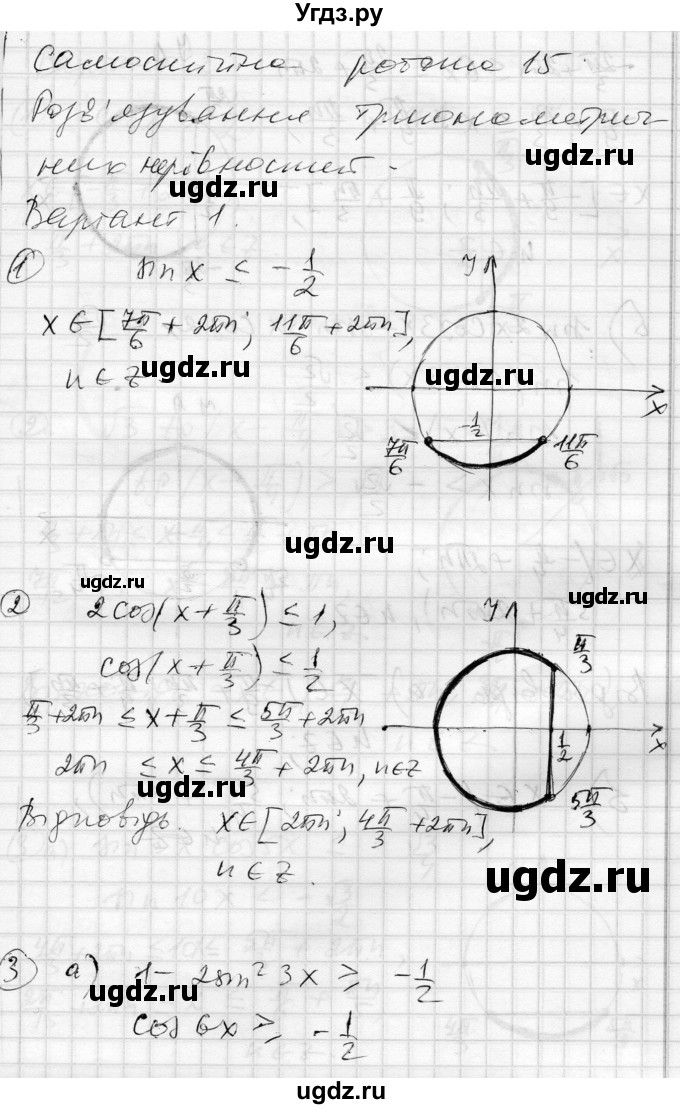 Угдз.ру
Самостійна робота 15
Розв'язування тригонометрич-
них нерівностей.
ugdz.ru
ugdz.ru
Варіант 1.
① sin x ≤ -1/2
x ∈ [7π/6 + 2πn; 11π/6 + 2πn],
n ∈ Z
ugdz.ru
ugdz.ru
y
x
-1/2
7π/6
11π/6
ugdz.ru
ugdz.ru
ugdz.ru
② 2cos(x + π/3) ≤ 1,
cos(x + π/3) ≤ 1/2
π/3 + 2πn ≤ x + π/3 ≤ 5π/3 + 2πn
2πn ≤ x ≤ 4π/3 + 2πn, n ∈ Z
y
π/3
x
1/2
5π/3
ugdz.ru
Відповідь. x ∈ [2πn; 4π/3 + 2πn],
n ∈ Z.
ugdz.ru
③ а) 1 - 2sin² 3x ≥ -1/2
ugdz.ru
cos 6x ≥ -1/2
ugdz.ru
ugdz.ru